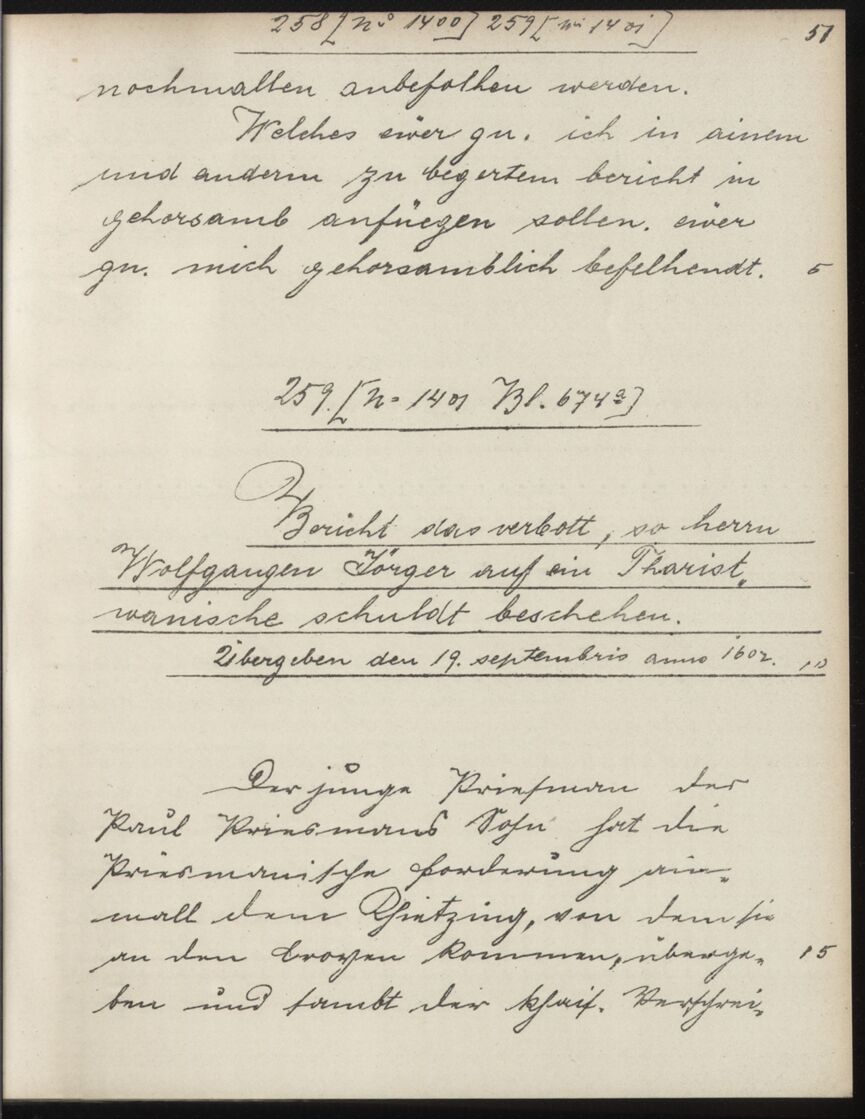 258 [No 1400] 259 [No 1401] 51
nochmallen anbefolhen werden.
Welches ewer gn. ich in ainem
und anderm zu begertem bericht in
gehorsamb anfüegen sollen. ewer
gn. mich gehorsamblich befelhendt. 5
259. [No 1401 Bl. 674a]
Bericht das verbott, so herrn
Wolfgangen Jörger auf ein Tharist„
wanische schuldt beschehen.
Übergeben den 19. septembris anno 1602. 10
Der junge Priesman des
Paul Priesmans Sohn hat die
Priesmanische forderung ain„
mall dem Chietzing, von dem sie
an den kommen, überge„ 15
ben und sambt der khais. Verschrei„